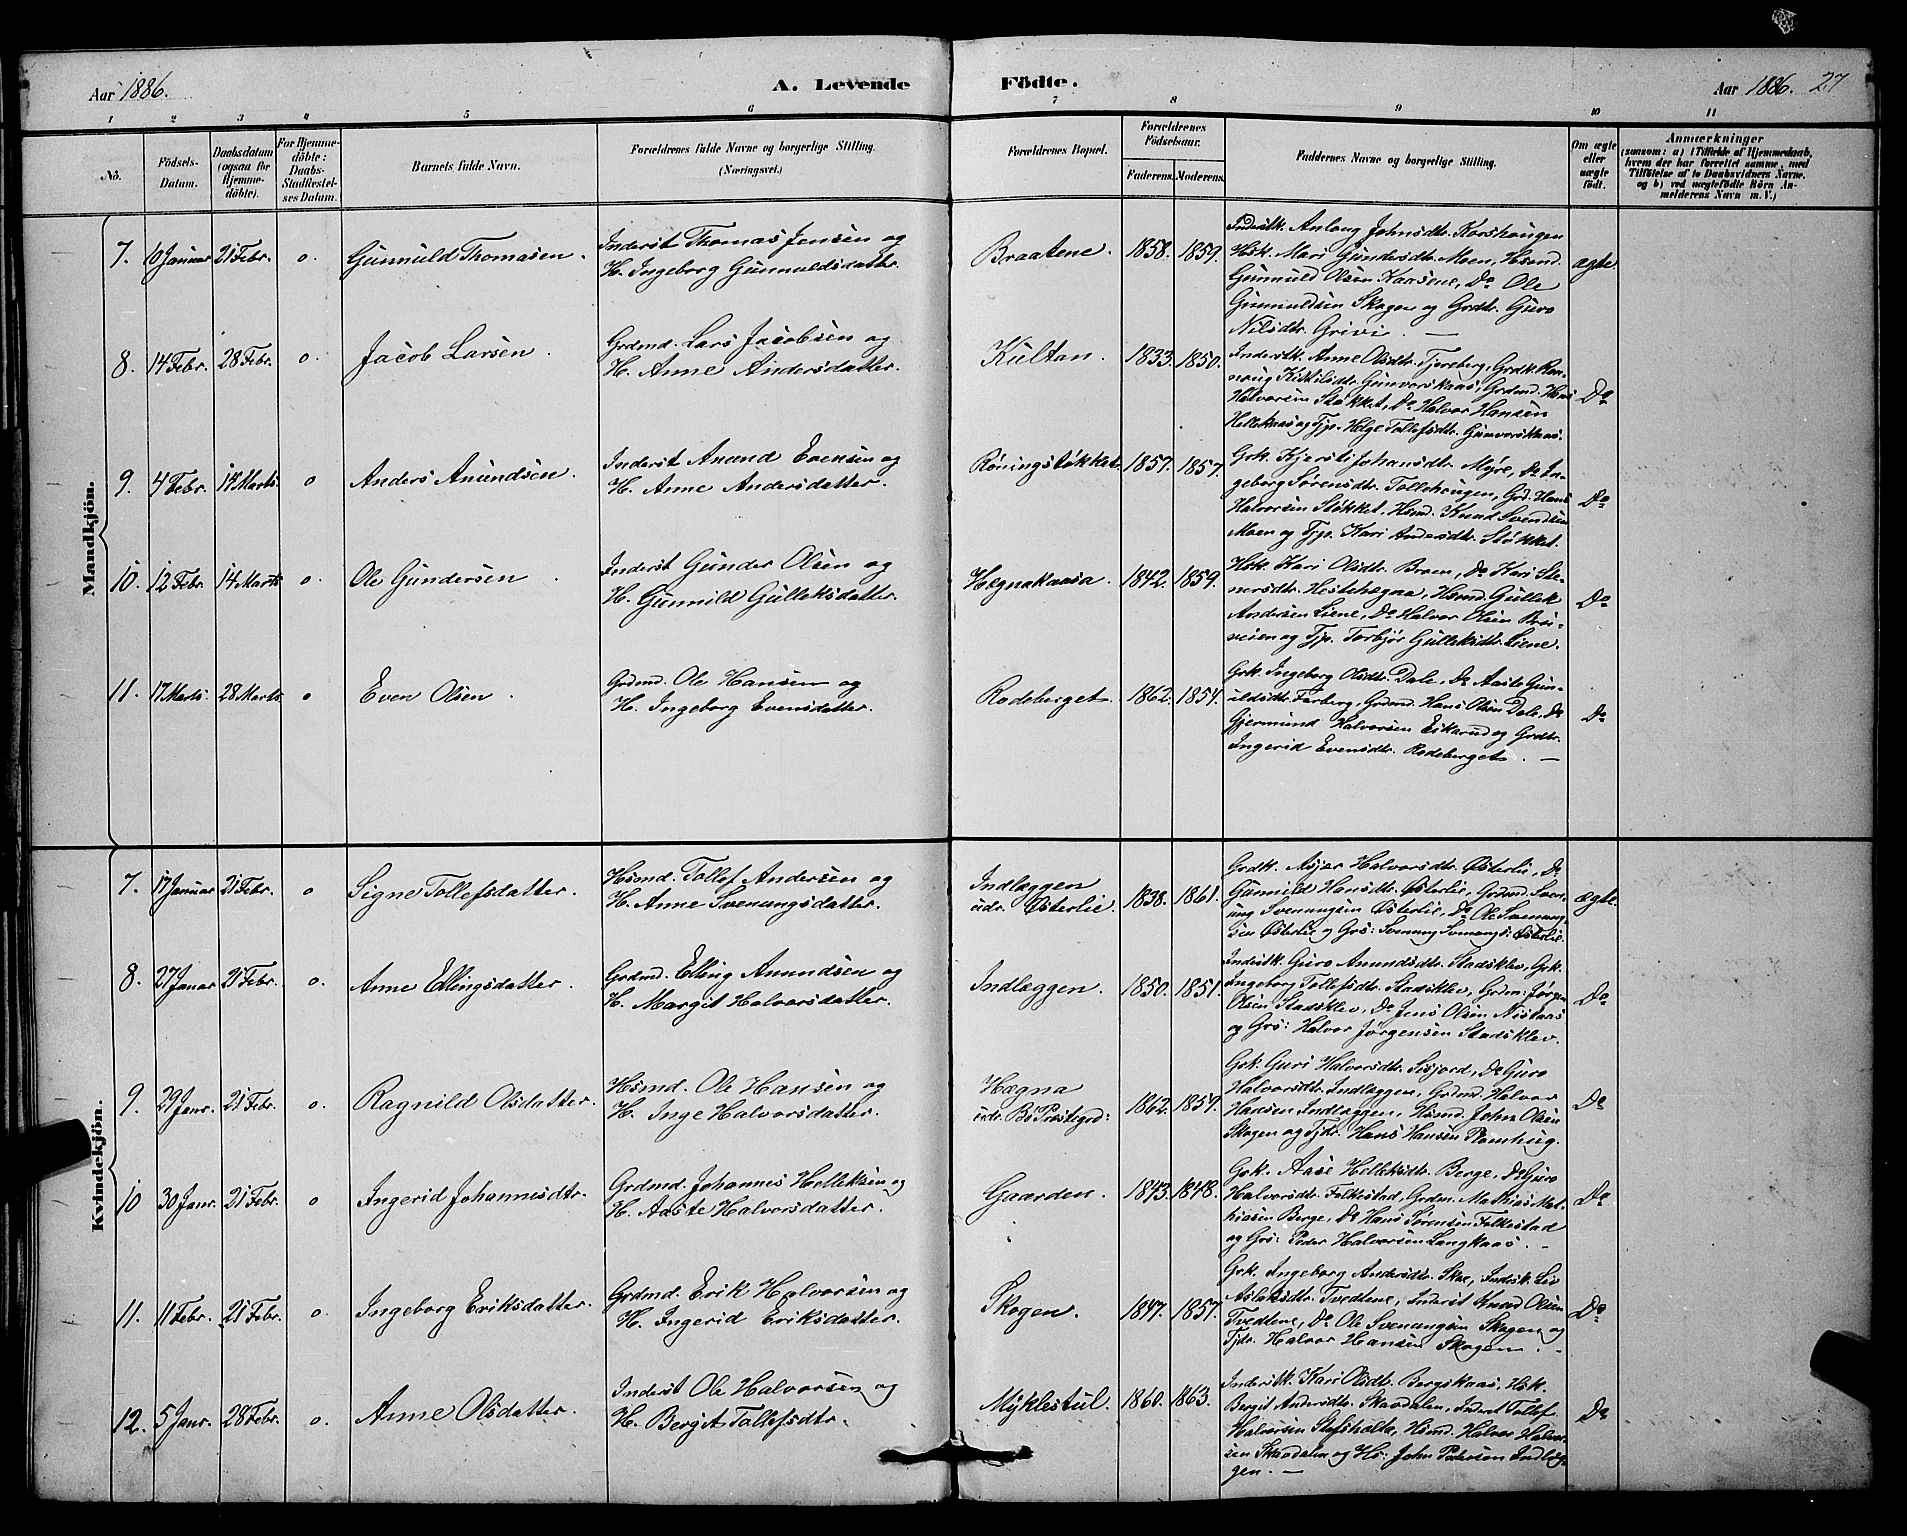 Aar 1886. A. Levende Födte. Aar 1886. 27
1 2 3 4 5 6 7 8 9 10 11
No. Födsels-Datum. Daabsdatum (ogsaa for Hjemmedöbte). For Hjemmedöbte: Daabs-Stadfæstelses Datum. Barnets fulde Navn. Forældrenes fulde Navne og borgerlige Stilling. (Næringsvei.) Forældrenes Bopæl. Forældrenes Födselsaar. Faderens. Moderens. Faddernes Navne og borgerlige Stilling. Om ægte eller uægte födt. Anmærkninger (saasom: a) i Tilfælde af Hjemmedaab, hvem der har forrettet samme, med Tilföielse af to Daabsvidners Navne. og b) ved uægtefödte Börn Anmelderens Navn m. V.)
Mandkjön.
7. 10 Januar 21 Febr. o. Gunnuld Thomasen. Inderst Thomas Jensen og
H. Ingeborg Gunnuldsdatter. Braatene. 1858. 1859. ægte.
Inderstk. Anlaug Johnsdtr. Korshaugen
Hsk. Mari Gundersdtr. Moen, Hsmd.
Gunnuld Olsen Kaasene, Do Ole
Gunnuldsen Skogen og Grdtr. Guro
Nilsdtr. Grivi. —
8. 14 Febr. 28 Febr. o. Jacob Larsen. Grdmd. Lars Jacobsen og
H. Anne Andersdatter. Kultan. 1833. 1850. Do
Inderstk. Anne Olsdtr. Tjoreberg, Grdk. Ran-
noug Kittilsdtr. Gunvorskaas, Grdmd. Hans
Halvorsen Stokket, Do Halvor Hansen
Hellekaas og Tjp. Helge Tollefsdtr. Gunvorskaas.
9. 4 Febr. 14 Marts. o Anders Anundsen. Inderst Anund Evensen og
H. Anne Andersdatter. Röningstökket. 1857. 1857. Do
Grk. Kjersti Johansdtr. Myre, Do In-
geborg Sörensdtr. Tollehaugen, Grd. Hans
Halvorsen Stökket, Hsmd. Knud Svendsen
Moen og Tjp. Kari Andersdtr. Stökket.
10. 12 Febr. 14 Marts o. Ole Gundersen. Inderst Gunder Olsen og
H. Gunnild Gulleksdatter. Hægnakaasa. 1842. 1859. Do
Hsk. Kari Olsdtr. Broen, Do Kari Ste-
nersdtr. Hestehægna, Hsmd. Gullek
Andersen Liene, Do Halvor Olsen Brei-
veien og Tjp. Torbjör Gulleksdtr. Liene.
11. 17 Marts. 28 Marts o Even Olsen. Grdmd. Ole Hansen og
H. Ingeborg Evensdatter. Rodeberget. 1862. 1854. Do
Grk. Ingeborg Olsdtr. Dale, Do Aaste Gun-
uldsdtr. Forberg, Grdmd. Hans Olsen Dale, Do
Gjermund Halvorsen Eikarud og Grdtr.
Ingerid Evensdtr. Rodeberget. —
Kvindekjön.
7. 17 Januar 21 Febr. o Signe Tollefsdatter. Hsmd. Tollef Andersen og
H. Anne Svenungsdatter. Indlæggen
udr. Østerlie. 1838. 1861. ægte.
Grdk. Asjær Halvorsdtr. Østerlie, Do
Gunnild Hansdtr. Østerlie, Grdmd. Sven-
ung Svenungsen Østerlie, Do Ole Svenung-
sen Østerlie og Grs: Svenung Svenungs: Østerlie.
8. 27 Januar 21 Febr. o. Anne Ellingsdatter. Grdmd. Elling Anundsen og
H. Margit Halvorsdatter. Indlæggen. 1850. 1851. Do
Inderstk. Guro Anundsdtr. Stadsklev, Grk.
Ingeborg Tollefsdtr. Stadsklev, Grdm. Jörgen
Olsen Stadsklev, Do Jens Olsen Nistaas
og Grs: Halvor Jörgensen Stadsklev.
9. 29 Janr. 21 Febr. o. Ragnild Olsdatter. Hsmd. Ole Hansen og
H. Inge Halvorsdatter. Hægna
udr. Bö Præstegrd: 1862. 1857. Do
Grk. Guri Halvorsdtr. Sisjord, Do Guro
Halvorsdtr. Indlæggen, Grdmd. Halvor
Hansen Indlæggen, Hsmd. John Olsen
Skogen og Tjdr. Hans Hansen Plomhug.
10 30 Janr. 21 Febr. o Ingerid Johannesdtr. Grdmd. Johannes Helleksen og
H. Aaste Halvorsdatter. Gaarden. 1843. 1848. Do
Grk. Aase Helleksdtr. Berge, Do Guro
Halvorsdtr. Folkestad, Grdm. Mathias Mat-
hiasen Berge, Do Hans Sörensen Folkestad
og Grs: Peder Halvorsen Langkaas. -
11. 11 Febr. 21 Febr. o. Ingeborg Eriksdatter. Grdmd. Erik Halvorsen og
H. Ingerid Eriksdatter. Skogen. 1847. 1857. Do
Grk. Ingeborg Andersdtr. Skoe, Indrstk. Liv
Aslaksdtr. Tvedtene, Inderst Knud Olsen
Tvedtene, Do Ole Svenungsen Skogen og
Tjdr. Halvor Hansen Skogen. -
12. 5 Janr. 28 Febr. o. Anne Olsdatter. Inderst Ole Halvorsen og
H. Bergit Tollefsdtr. Myklestul. 1860. 1863. Do
Inderstk. Kari Olsdtr. Bergskaas, Hsk.
Bergit Andersdtr. Skavdalen, Inderst Tollef
Halvorsen Stafsholta, Hsmd. Halvor Halvor-
sen Skavdalen og Hs: John Pedersen Indlæg-
gen. —